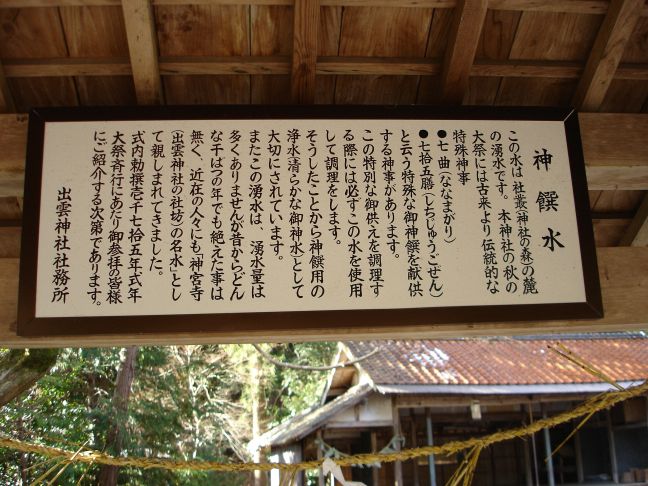 神饌水
この水は社叢(神社の森)の麓
の湧水です。本神社の秋の
大祭には古来より伝統的な
特殊神事
●七曲(ななまがり)
●七拾五膳(しちじゅうごぜん)
と云う特殊な御神饌を献供
する神事があります。
この特別な御供えを調理す
る際には必ずこの水を使用
して調理をします。
そうしたことから神饌用の
浄水(清らかな御神水)として
大切にされています。
またこの湧水は、湧水量は
多くありませんが昔からどん
な干ばつの年でも絶えた事は
無く、近在の人々にも「神宮寺
(出雲神社の社坊)の名水」とし
て親しまれてきました。
式内勅撰壱千七拾五年式年
大祭斉行にあたり御参拝の皆様
にご紹介する次第であります。
出雲神社社務所